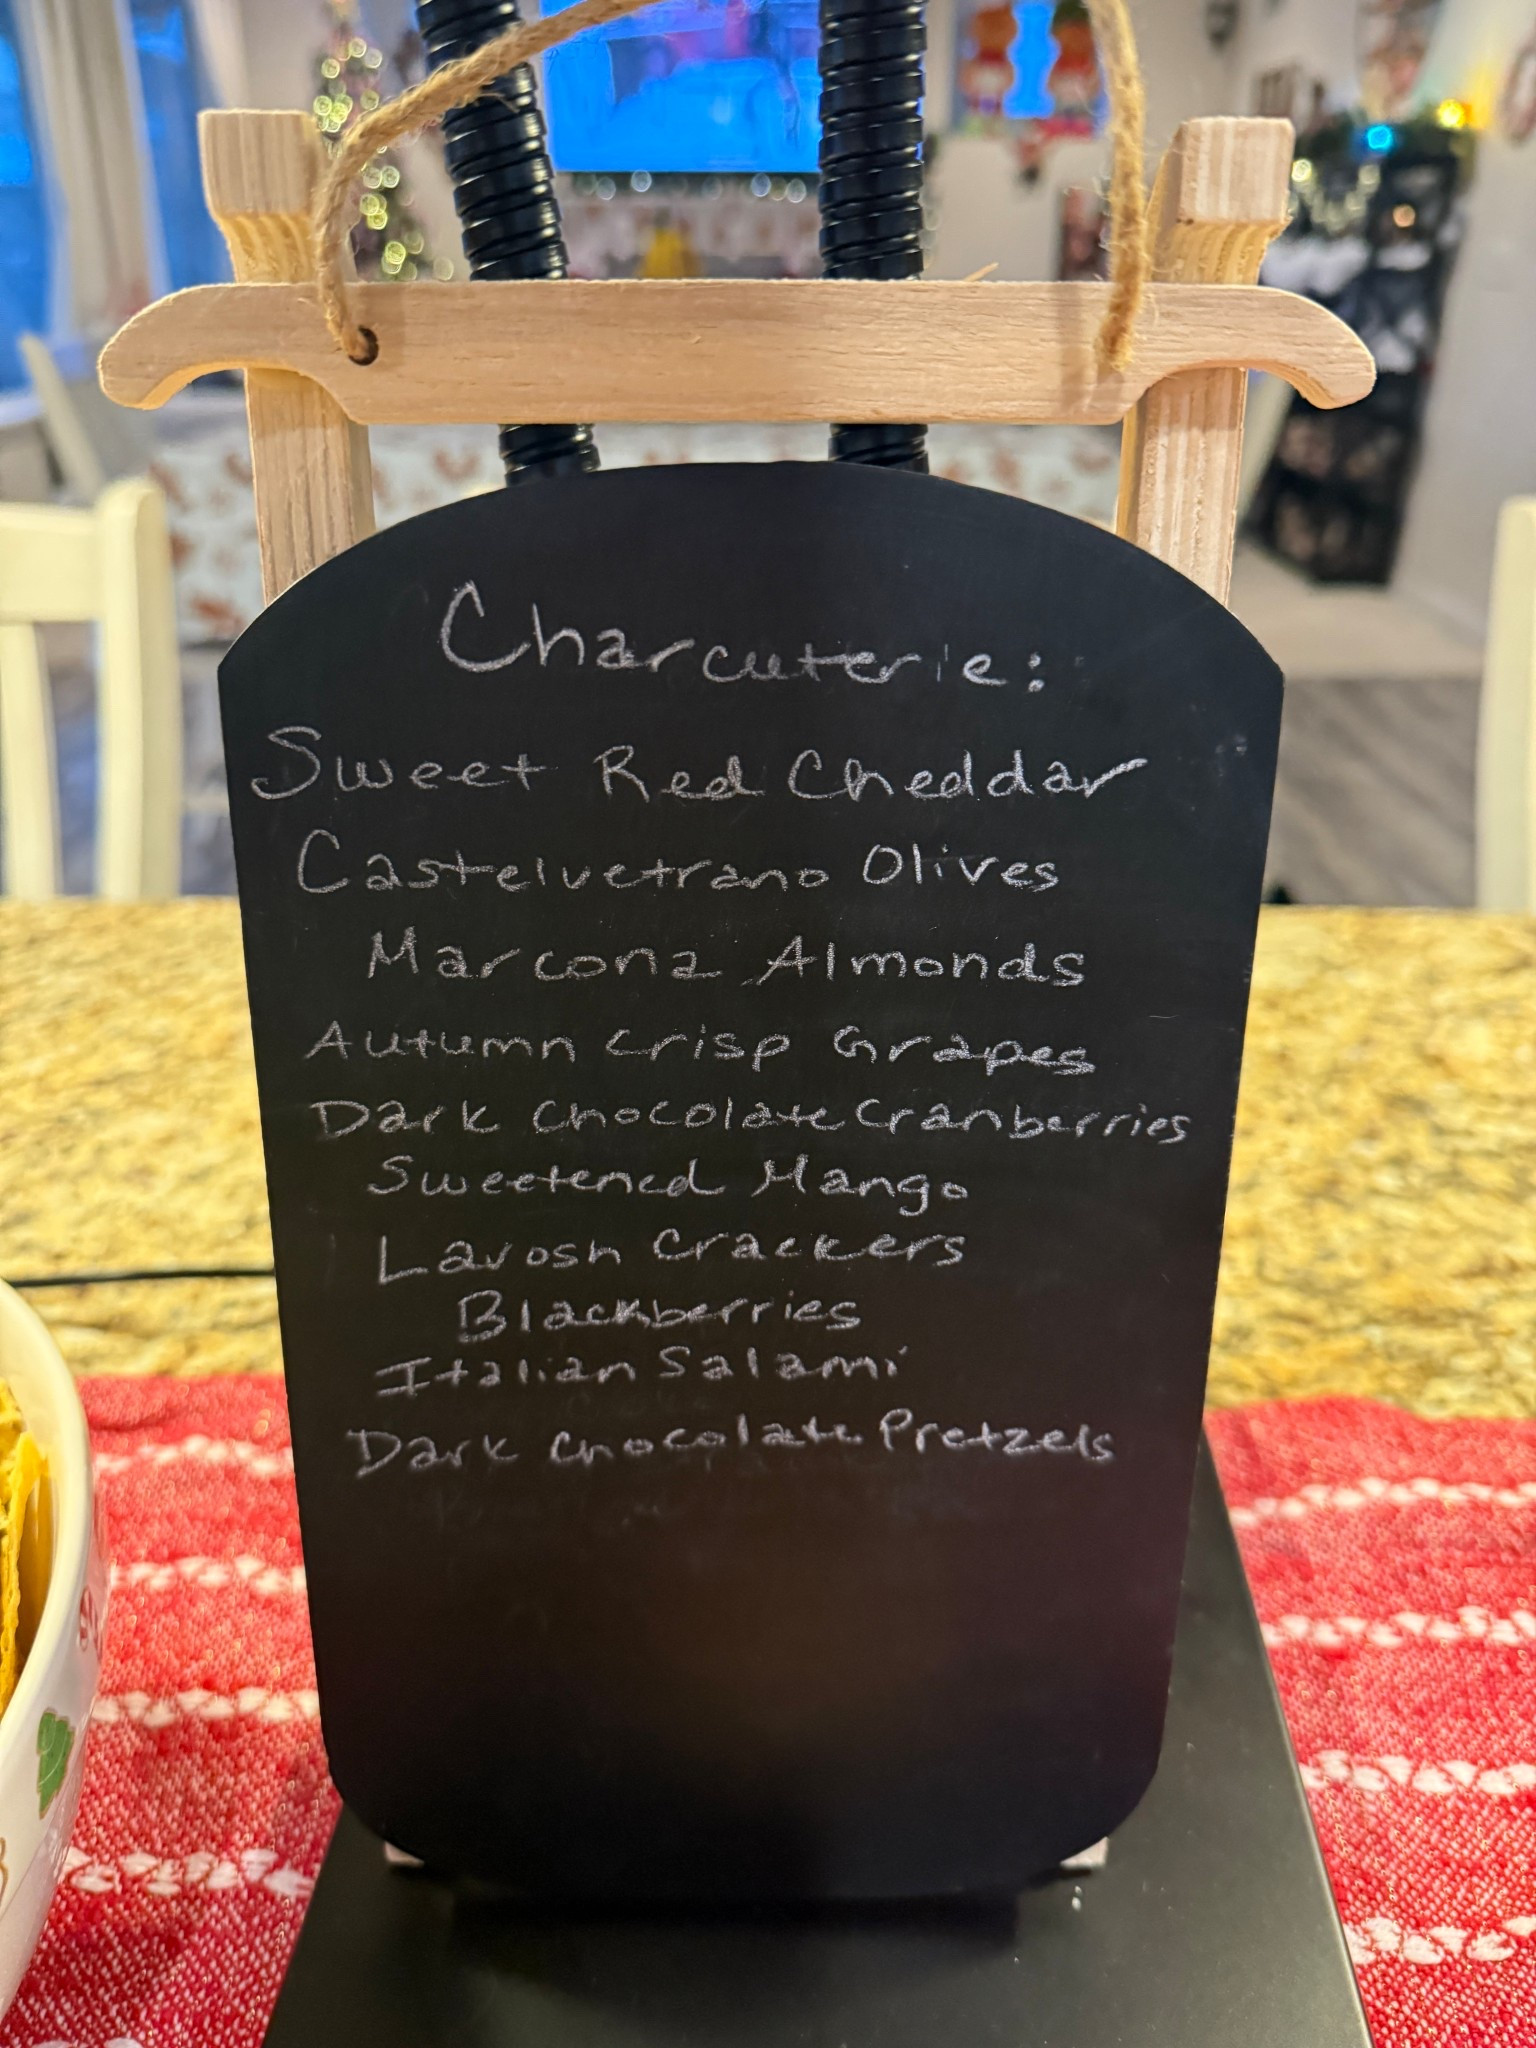 Charcuterie:
Sweet Red Cheddar
Castelvetrano Olives
Marcona Almonds
Autumn Crisp Grapes
Dark Chocolate Cranberries
Sweetened Mango
Lavosh Crackers
Blackberries
Italian Salami
Dark Chocolate Pretzels